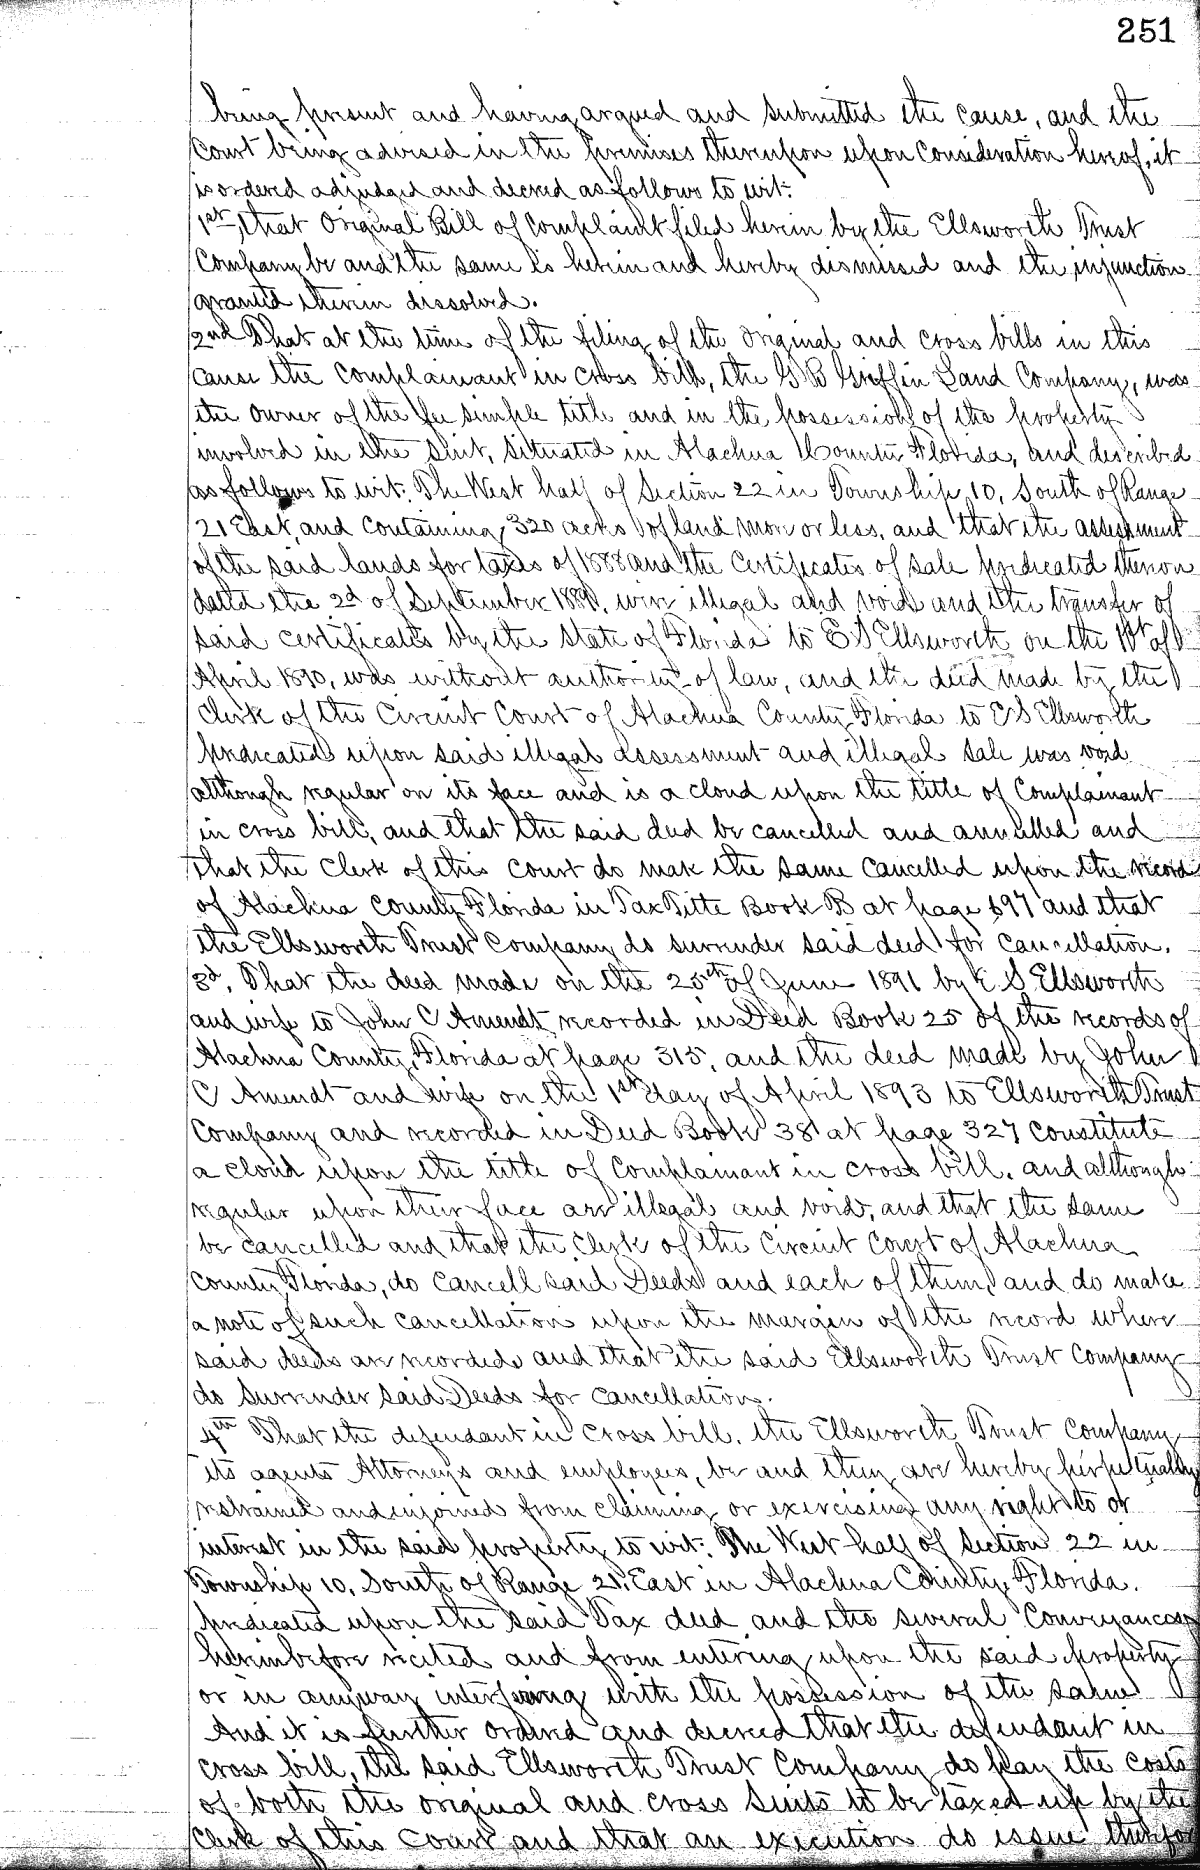 251
being present and having argued and submitted the cause, and the
Court being advised in the premises thereupon upon consideration hereof, it
is ordered adjudged and decreed as follows to wit:
1st, that Original Bill of Complaint filed herein by the Ellsworth Trust
Company be and the same is herein and hereby dismissed and the injunction
granted therein dissolved.
2nd That at the time of the filing of the Original and cross bills in this
cause the Complainant in cross bill, the G B Griffin Land Company, was
the owner of the fee simple title and in the possession of the property
involved in the suit, situated in Alachua County Florida, and described
as follows to wit: The West half of Section 22 in Township 10, South of Range
21 East, and containing 320 acres of land more or less, and that the assessment
of the said lands for taxes of 1888 and the Certificates of sale predicated thereon
dated the 2d of September 1889, were illegal and void and the transfer of
said certificates by the State of Florida to E S Ellsworth on the 1st of
April 1890, was without authority of law, and the deed made by the
Clerk of the Circuit Court of Alachua County Florida to E S Ellsworth
predicated upon said illegal assessment and illegal sale was void
although regular on its face and is a cloud upon the title of Complainant
in cross bill, and that the said deed be cancelled and annulled and
that the Clerk of this Court do mark the same cancelled upon the record
of Alachua County Florida in Tax Title Book B at page 97 and that
the Ellsworth Trust Company do surrender said deed for cancellation.
3d, That the deed made on the 25th of June 1891 by E. S Ellsworth
and wife to John C Amendt recorded in Deed Book 25 of the records of
Alachua County, Florida at page 315, and the deed made by John
C Amendt and wife on the 1st day of April 1893 to Ellsworth Trust
Company and recorded in Deed Book 38 at page 327 constitute
a cloud upon the title of Complainant in cross bill, and although
regular upon their face are illegal and void, and that the same
be cancelled and that the Clerk of the Circuit Court of Alachua
County Florida, do cancell said Deeds and each of them, and do make
a note of such cancellation upon the margin of the record where
said deeds are recorded and that the said Ellsworth Trust Company
do surrender said Deeds for cancellation.
4th That the defendant in cross bill, the Ellsworth Trust Company
its agents Attorneys and employees, be and they are hereby perpetually
restrained and enjoined from claiming or exercising any right to or
interest in the said property to wit: The West half of Section 22 in
Township 10, South of Range 21, East in Alachua County, Florida.
predicated upon the said Tax deed and the several Conveyances
hereinbefore recited and from entering upon the said property
or in anyway interfering with the possession of the same
And it is further ordered and decreed that the defendant in
cross bill, the said Ellsworth Trust Company do pay the costs
of both the original and cross suits to be taxed up by the
Clerk of this Court and that an execution do issue therefor